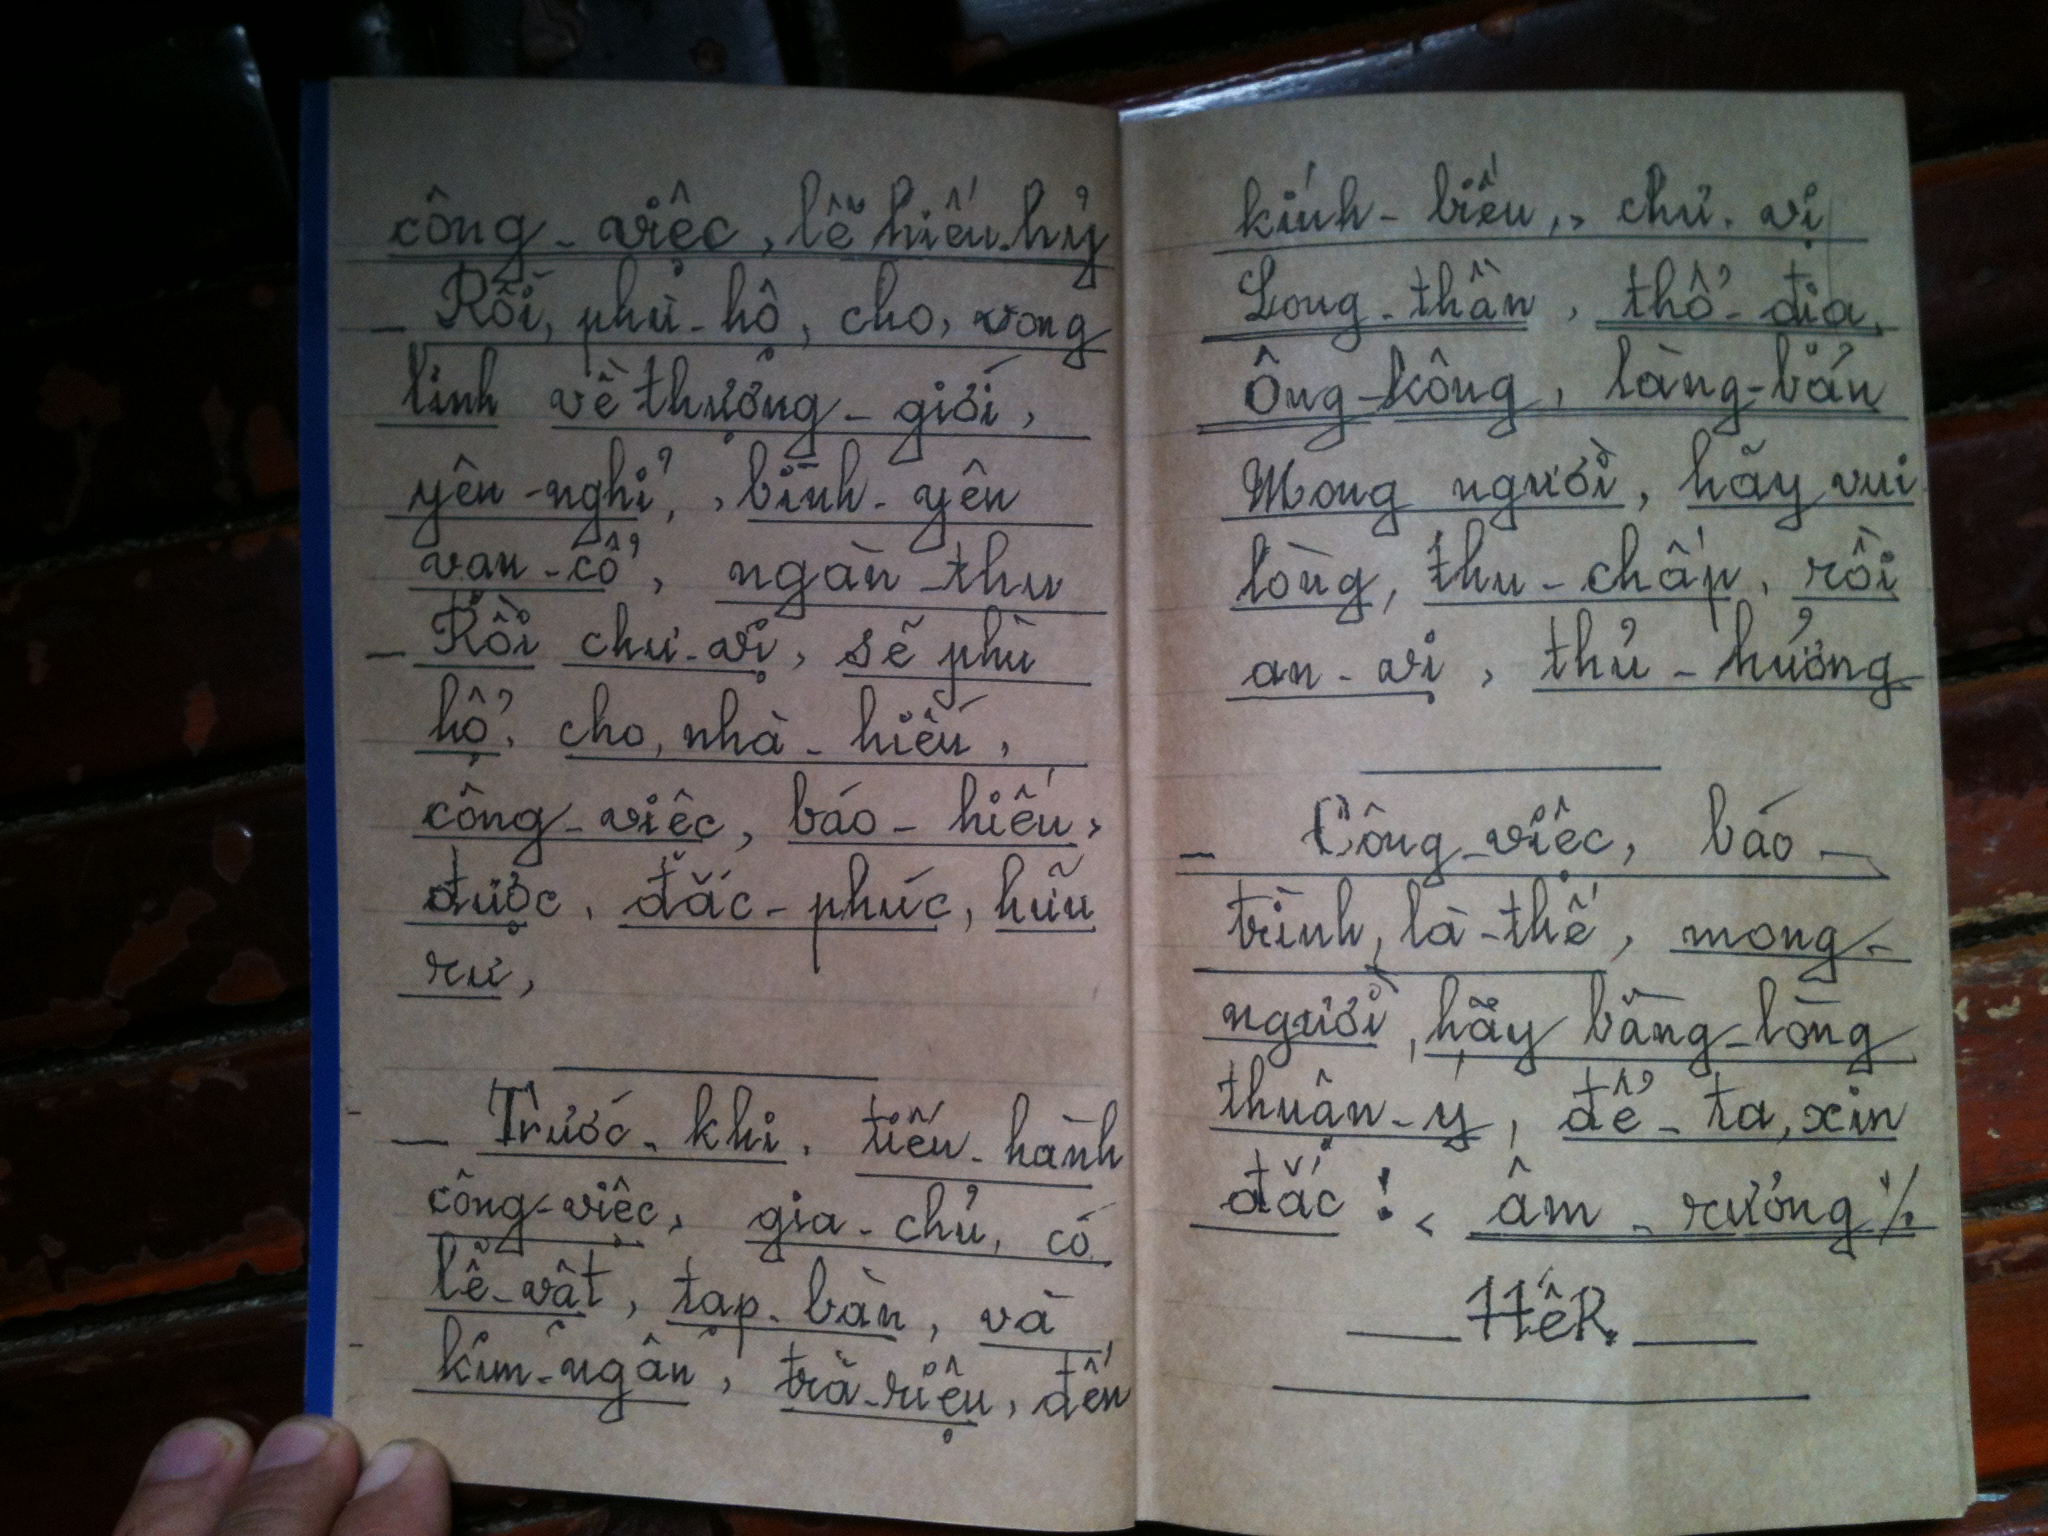 công - việc, lễ hiếu - hỷ
- Rồi, phù - hộ, cho, vong
linh về thượng - giới,
yên - nghỉ, , bình - yên
vạn - cổ, ngàn - thu
- Rồi chư - vị, sẽ phù
hộ, cho, nhà - hiếu,
công - việc, báo - hiếu,
được, đắc - phúc, hữu
rư,
- Trước - khi, tiến - hành
công - việc, gia - chủ, có
lễ - vật, tạp - bàn, và
kim - ngân, trà - riệu, đến
kính - biếu, , chư - vị
Long - thần, thổ - địa,
Ông - kông, làng - bản
Mong người, hãy vui
lòng, thu - chấp, rồi
an - vị, thủ - hưởng
- Công - việc, báo -
trình, là - thế, mong -
người, hãy bằng - lòng
thuận - ý, để - ta, xin
đắc ! < âm - rương ./.
HếR.